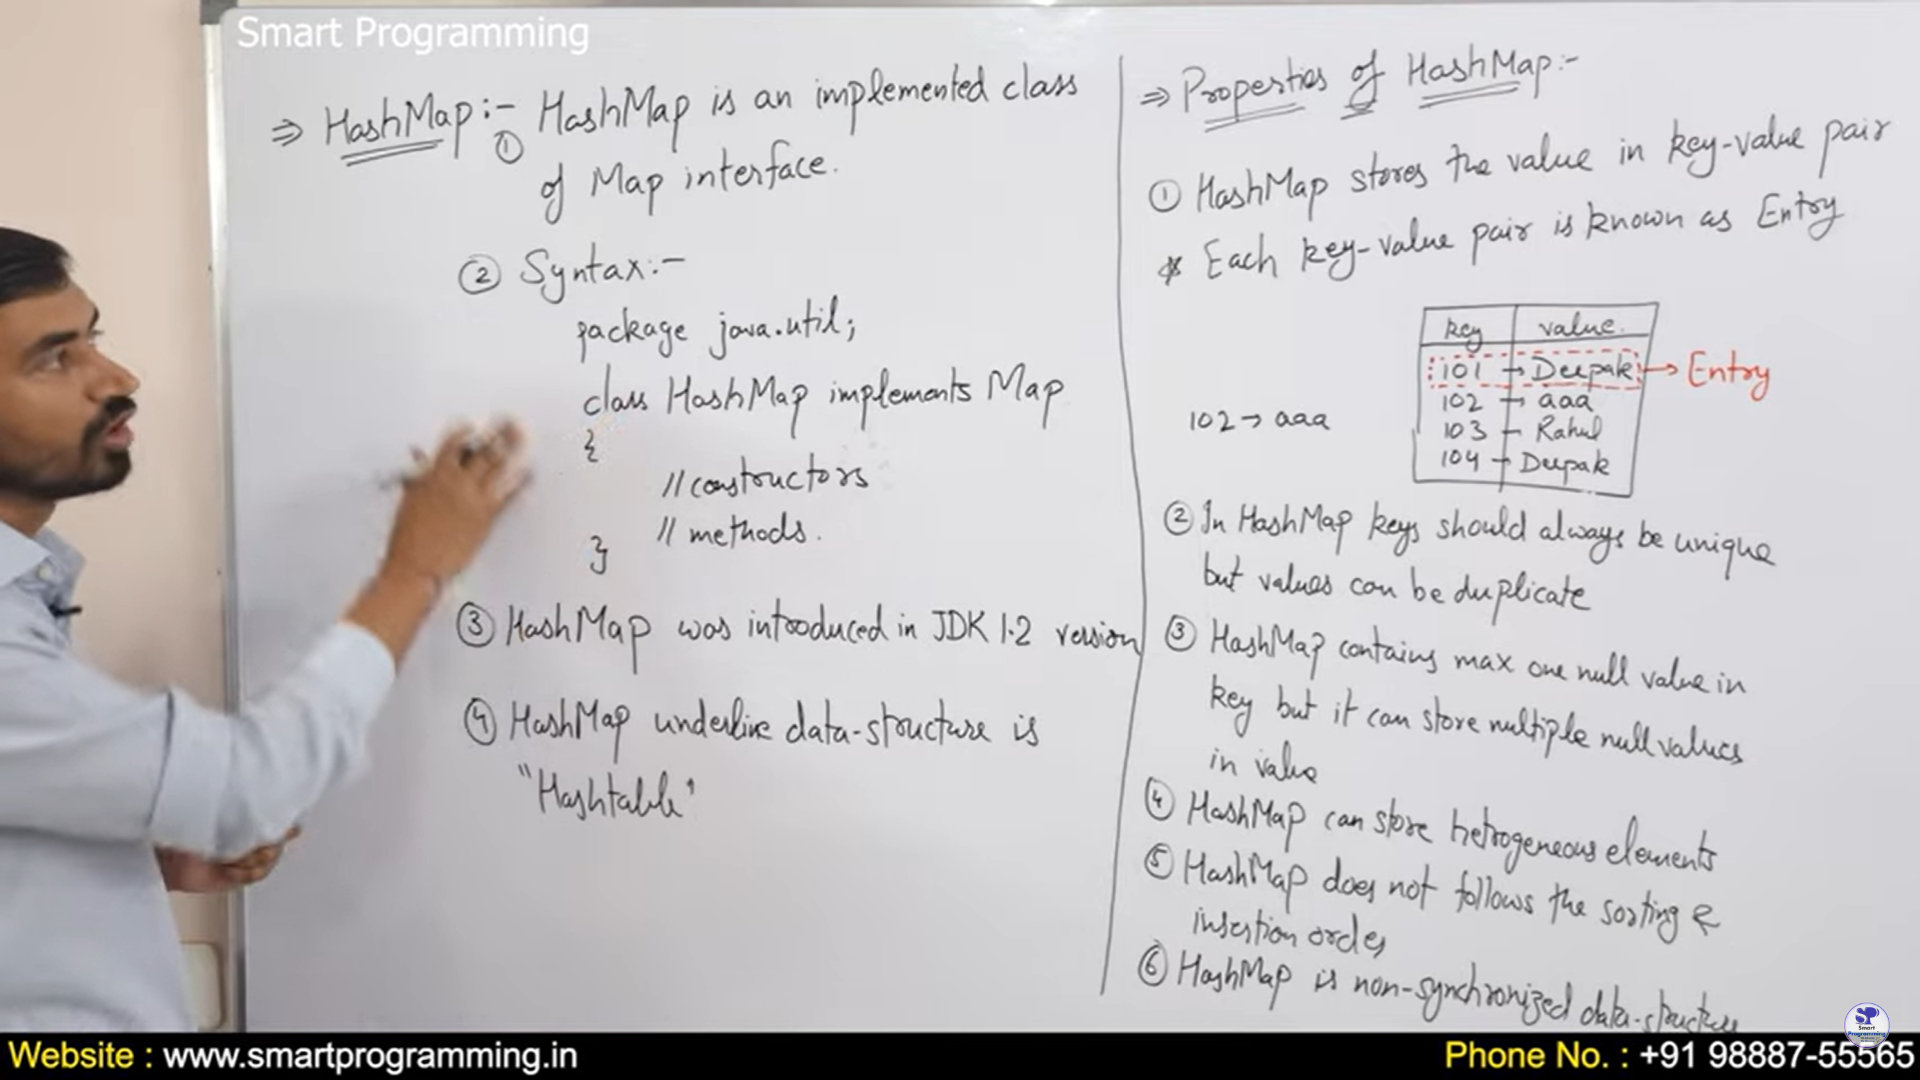 Smart Programming
⇒ HashMap :- ① HashMap is an implemented class
of Map interface.
② Syntax:-
package java.util;
class HashMap implements Map
{
// constructors
// methods.
}
③ HashMap was introduced in JDK 1.2 version
④ HashMap underline data-structure is
"Hashtable"
⇒ Properties of HashMap:-
① HashMap stores the value in key-value pair
* Each key-value pair is known as Entry
key value.
101 → Deepak → Entry
102 → aaa
103 – Rahul
104 – Deepak
102 → aaa
② In HashMap keys should always be unique
but values can be duplicate
③ HashMap contains max one null value in
key but it can store multiple null values
in value
④ HashMap can store hetrogeneous elements
⑤ HashMap does not follows the sorting &
insertion order
⑥ HashMap is non-synchronized data-structure
SP
Smart
Programming
Website : www.smartprogramming.in
Phone No. : +91 98887-55565